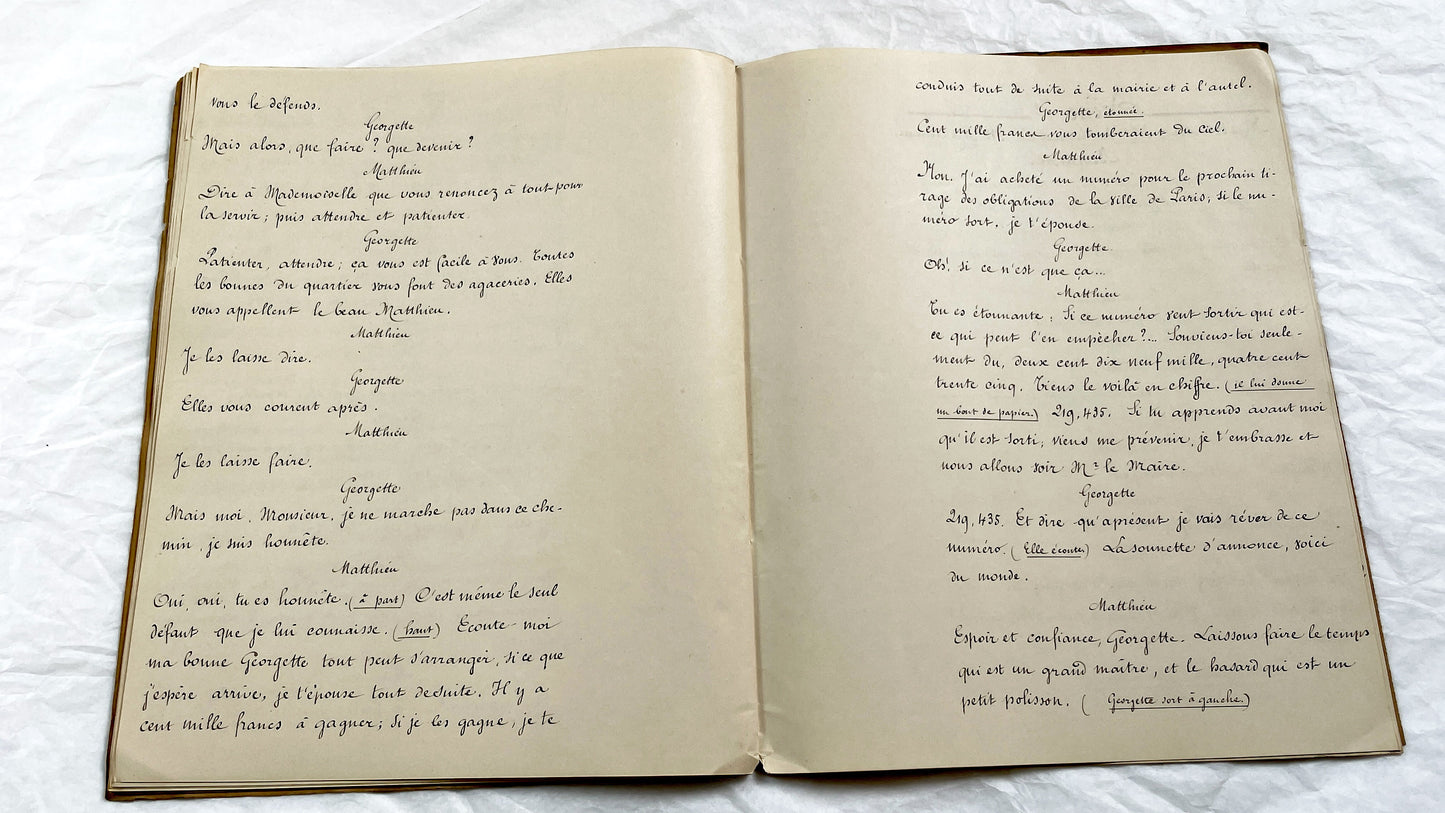 vous le défends.
Georgette
Mais alors, que faire ? que devenir ?
Matthieu
Dire à Mademoiselle que vous renoncez à tout pour
la servir ; puis attendre et patienter.
Georgette
Patienter, attendre ; ça vous est facile à vous. Toutes
les bonnes du quartier vous font des agaceries. Elles
vous appellent le beau Matthieu.
Matthieu
Je les laisse dire.
Georgette
Elles vous courent après.
Matthieu
Je les laisse faire.
Georgette
Mais moi, Monsieur, je ne marche pas dans ce che-
min, je suis honnête.
Matthieu
Oui, oui, tu es honnête. (à part) C'est même le seul
défaut que je lui connaisse. (haut) Ecoute-moi
ma bonne Georgette tout peut s'arranger, si ce que
j'espère arrive, je t'épouse tout de suite. Il y a
cent mille francs à gagner ; si je les gagne, je te
conduis tout de suite à la mairie et à l'autel.
Georgette, étonnée.
Cent mille francs vous tomberaient du ciel.
Matthieu
Non. J'ai acheté un numéro pour le prochain ti-
rage des obligations de la ville de Paris ; si le nu-
méro sort, je t'épouse.
Georgette.
Oh! si ce n'est que ça...
Matthieu
Tu es étonnante ; Si ce numéro veut sortir qui est-
ce qui peut l'en empêcher ?... Souviens-toi seule-
ment du, deux cent dix neuf mille, quatre cent
trente cinq. Tiens le voilà en chiffre. (il lui donne
un bout de papier.) 219,435. Si tu apprends avant moi
qu'il est sorti, viens me prévenir, je t'embrasse et
nous allons voir Mr le Maire.
Georgette
219,435. Et dire qu'aprésent je vais rêver de ce
numéro. (Elle écoute) La sonnette d'annonce, voici
du monde.
Matthieu
Espoir et confiance, Georgette. Laissons faire le temps
qui est un grand maître, et le hasard qui est un
petit polisson. (Georgette sort à gauche.)